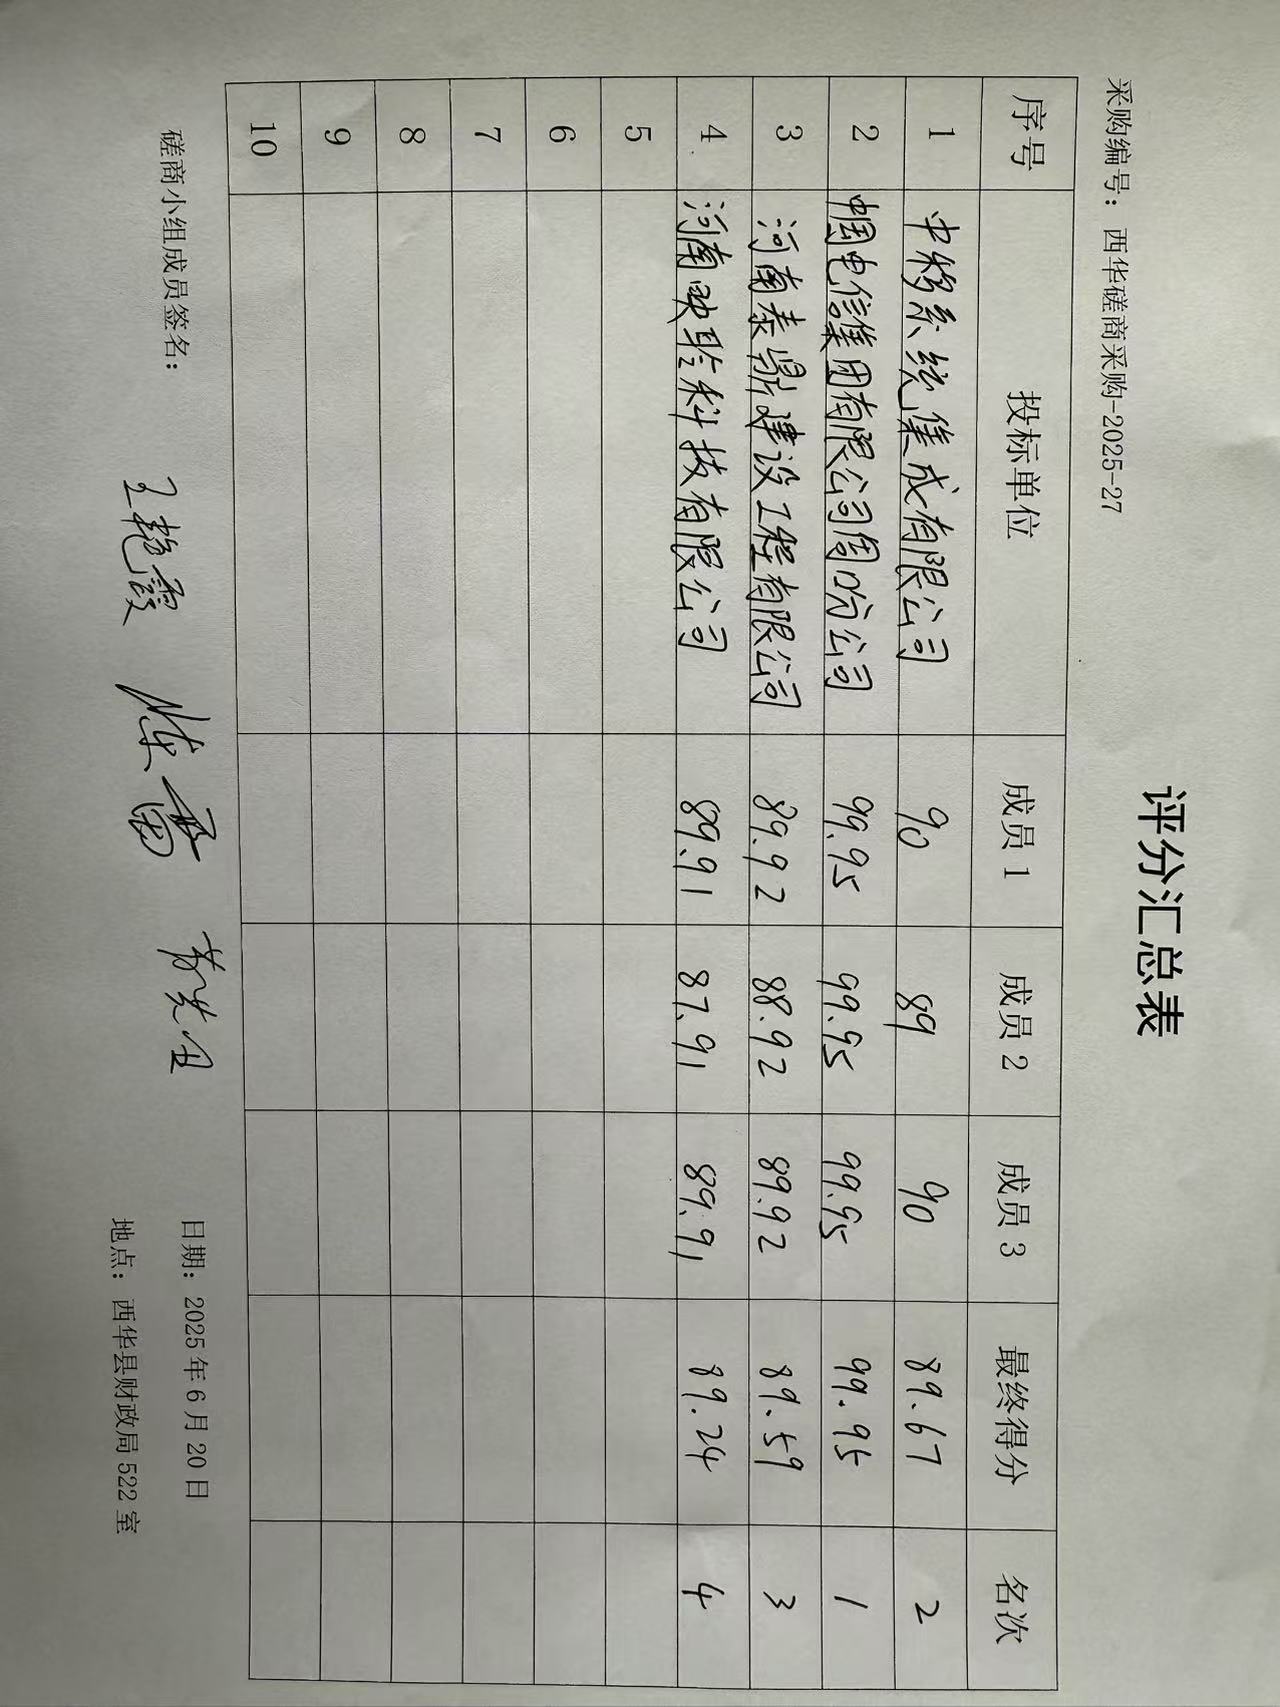 评分汇总表
采购编号：西华磋商采购-2025-27
序号 投标单位 成员1 成员2 成员3 最终得分 名次
1 中移系统集成有限公司 90 89 90 89.67 2
2 中国电信集团有限公司周口分公司 99.95 99.95 99.95 99.95 1
3 河南泰鼎建设工程有限公司 89.92 88.92 89.92 89.59 3
4 河南映聆科技有限公司 89.91 87.91 89.91 89.24 4
5
6
7
8
9
10
磋商小组成员签名： 王艳霞 陈雷
日期：2025年6月20日
地点：西华县财政局522室